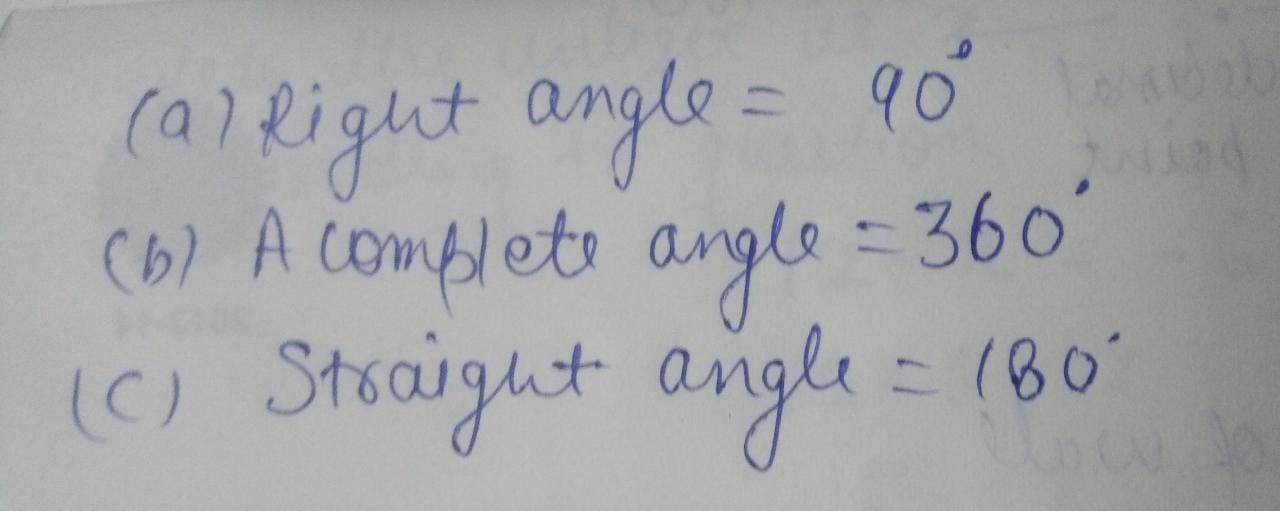 (a) Right angle = 90°
(b) A complete angle = 360°
(c) Straight angle = 180°